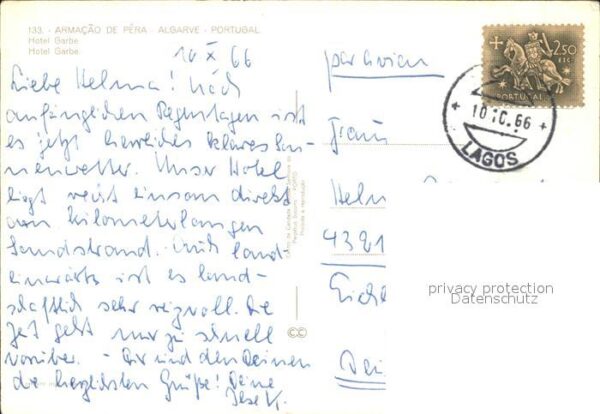 133. - ARMAÇÃO DE PÊRA - ALGARVE - PORTUGAL
Hotel Garbe
Hotel Garbe
10 X 66
Liebe Helma! Nach
anfänglichen Regentagen ist
es jetzt herrliches klares Son-
nenwetter. Unser Hotel
liegt recht einsam direkt
am kilometerlangen
Sandstrand. Auch land-
einwärts ist es land-
schaftlich sehr reizvoll. Die
Zeit geht nur zu schnell
vorüber. - Dir und den Deinen
die herzlichsten Grüße! Deine
Ilse K.
par avion
Frau
Helm
4321
2,50
ESC
PORTUGAL
10.10.66
LAGOS
privacy protection
Datenschutz